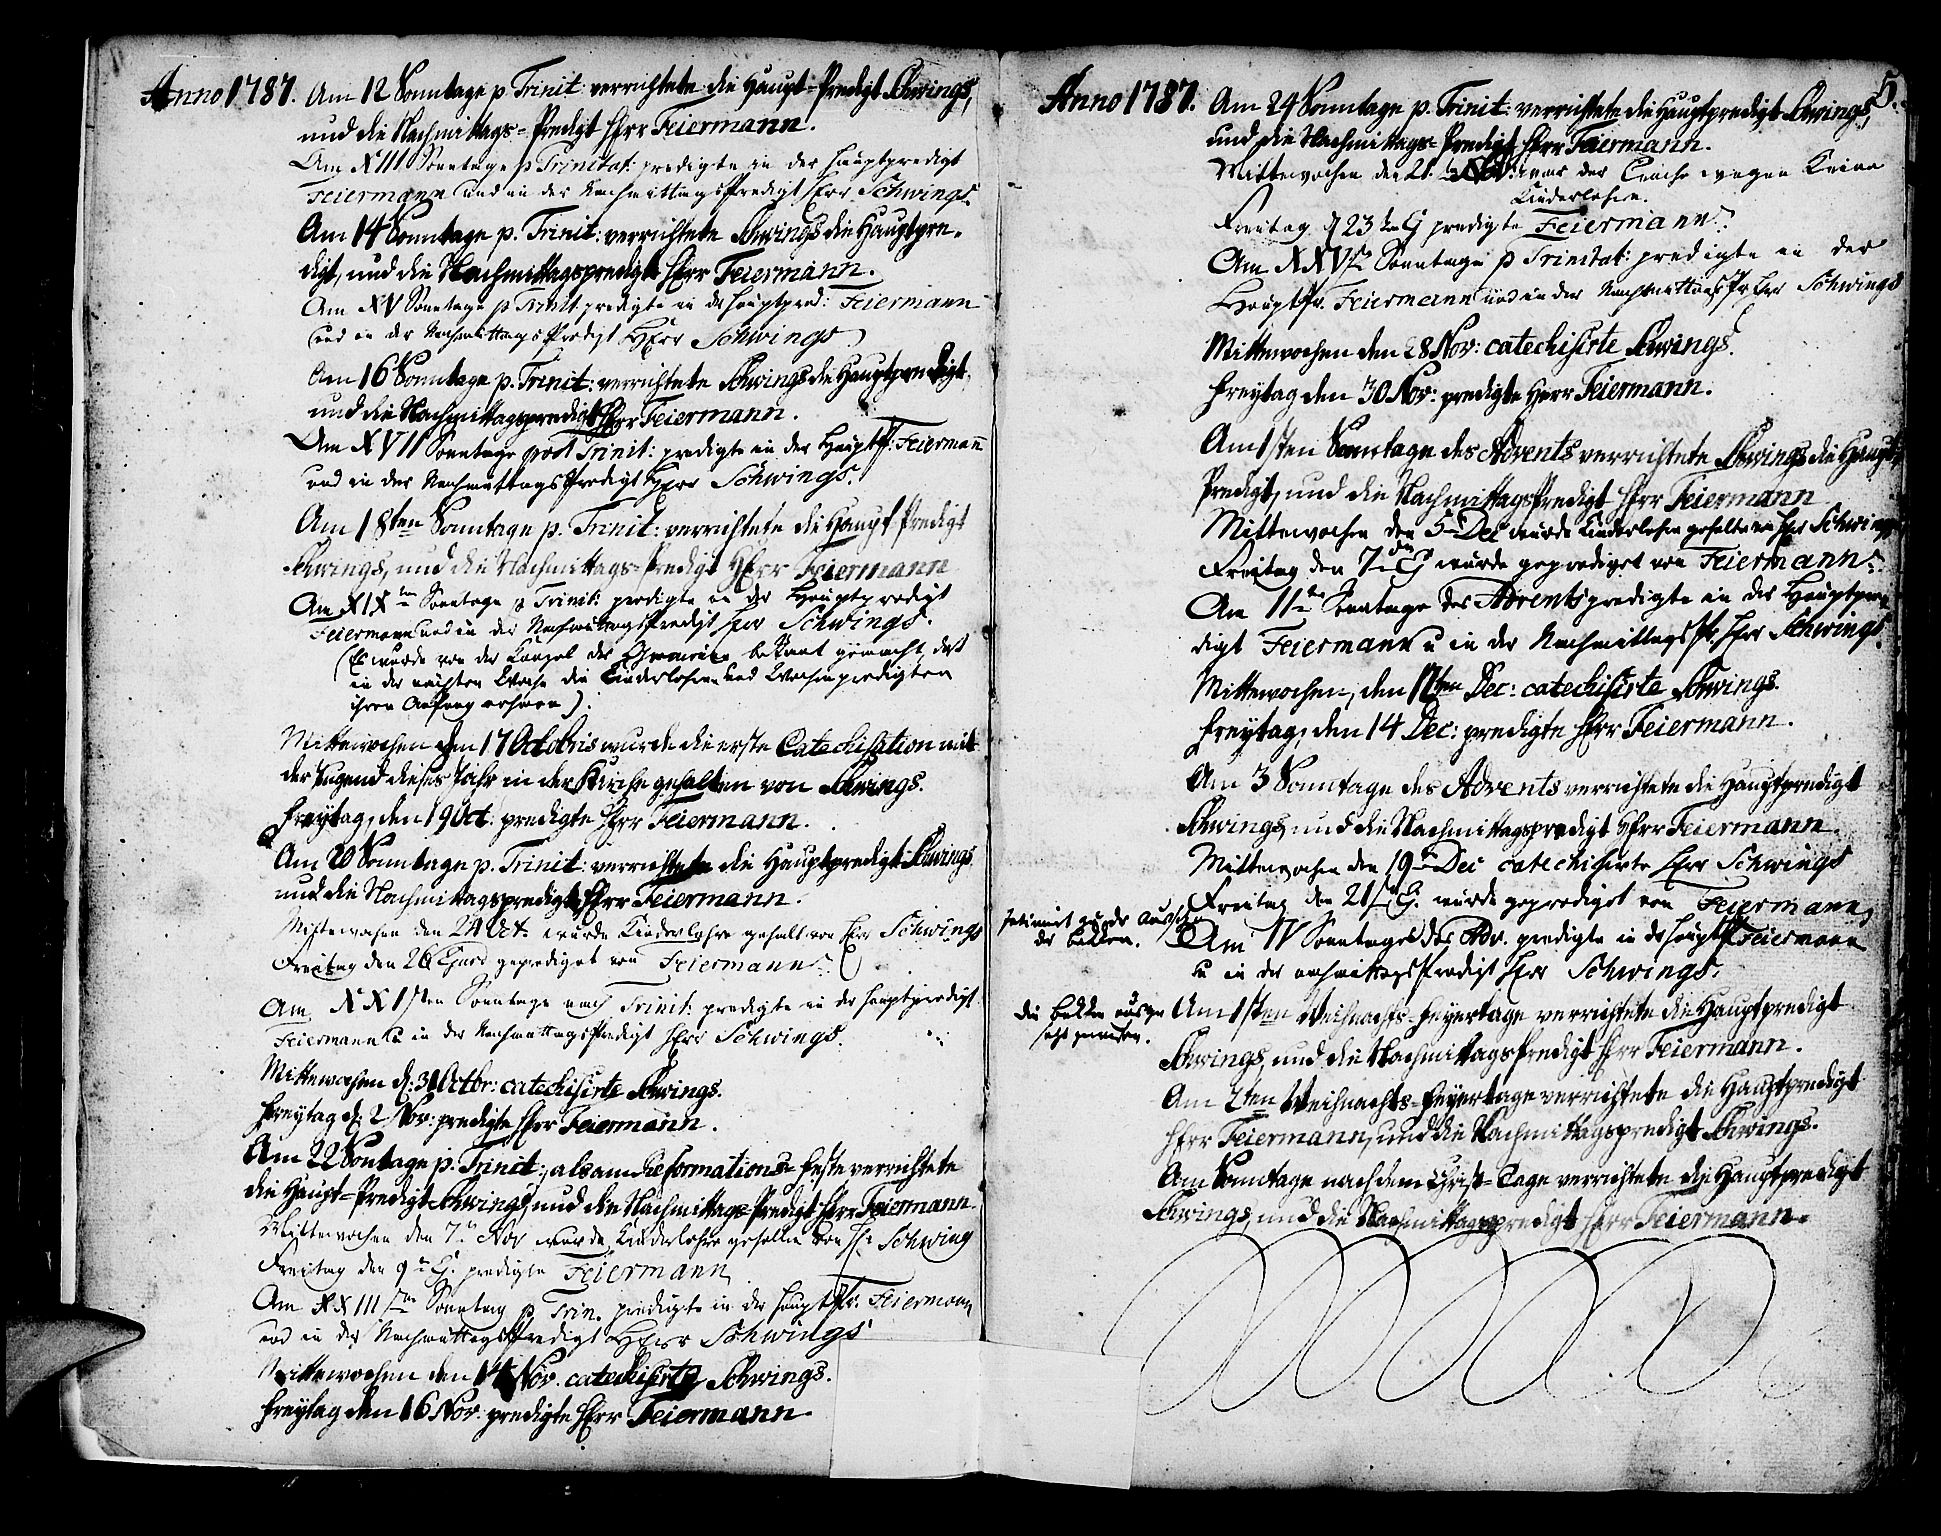 Anno 1787. Am 12 Sonntage p. Trinit: verrichtete die Haupt-Predigt Schwings,
und die Nachmittags-Predigt Herr Feiermann.
Am XIII Sonntage p Trinitat: predigte in der Hauptpredigt
Feiermann und in der NachmittagsPredigt Herr Schwings.
Am 14 Sonntage p. Trinit: verrichtete Schwings die Hauptpre-
digt, und die Nachmittagspredigt Herr Feiermann.
Am XV Sonntage p Trinit. predigte in der Hauptpred: Feiermann
und in der NachmittagsPredigt Herr Schwings
Am 16 Sonntage p. Trinit: verrichtete Schwings die Hauptpredigt,
und die Nachmittagspredigt Herr Feiermann.
Am XVII Sonntage post Trinit: predigte in der Hauptpr: Feiermann
und in der NachmittagsPredigt Herr Schwings.
Am 18ten Sonntage p. Trinit: verrichtete die Haupt Predigt
Schwings, und die Nachmittags-Predigt Herr Feiermann
Am XIXten Sonntage p Trinit: predigte in der Hauptpredigt
Feiermann und in der NachmittagsPredigt Herr Schwings.
(Es wurde von der Kanzel der Gemeine bekant gemacht, daß
in der nächsten Woche die Kinderlehren und Wochenpredigten
ihren Anfang nehmen).
Mittewochen den 17 Octobris wurde die erste Catechisation mit
der Jugend dieses Jahr in der Kirche gehalten von Schwings.
Freytag, den 19 Oct: predigte Herr Feiermann.
Am 20 Sonntage p. Trinit: verrichtete die Hauptpredigt Schwings
und die Nachmittagspredigt Herr Feiermann.
Mittewochen den 24 Oct. wurde Kinderlehre gehalt von Herr Schwings
Freitag den 26 geprediget von Feiermann.
Am XXIsten Sonntage nach Trinit: predigte in der Hauptpredigt
Feiermann u in der NachmittagsPredigt Herr Schwings.
Mittewochen d. 31 Octbr: catechisirte Schwings.
Freytag d. 2 Nov: predigte Herr Feiermann.
Am 22 Sontage p. Trinit:, als am Reformations-Feste verrichtete
die Haupt-Predigt Schwings, und die Nachmittags-Predigt Herr Feiermann.
Mittewochen den 7 Nov wurde Kinderlehre gehalten von H. Schwings
Freitag den 9 predigte Feiermann
Am XXIII Sonntag p Trin. predigte in der HauptPr. Feiermann
und in der NachmittagsPredigt Herr Schwings
Mittewochen den 14 Nov. catechisirte Schwings.
Freytag den 16 Nov. predigte Herr Feiermann.
5.
Anno 1787. Am 24 Sonntage p. Trinit: verrichtete die Hauptpredigt Schwings,
und die Nachmittags-Predigt Herr Feiermann.
Mittewochen den 21. Nov. war der Leiche wegen keine
Kinderlehre.
Freitag d 23 predigte Feiermann.
Am XXV Sonntage p Trinitat: predigte in der
HauptPr. Feiermann und in der NachmittagsPr Herr Schwings
Mittewochen den 28 Nov: catechisirte Schwings.
Freytag den 30 Nov: predigte Herr Feiermann.
Am 1sten Sonntage des Advents verrichtete Schwings die Haupt-
Predigt, und die NachmittagsPredigt Herr Feiermann
Mittewochen den 5 Dec wurde Kinderlehre gehalten von Herr Schwings
Freitag den 7 wurde geprediget von Feiermann.
Am IIten Sonntage des Advents predigte in der Hauptpre-
digt Feiermann u in der NachmittagsPr. Herr Schwings.
Mittewochen, den 12ten Dec: catechisirte Schwings.
Freytag, den 14 Dec: predigte Herr Feiermann.
Am 3 Sonntage des Advents verrichtete die Hauptpredigt
Schwings, und die Nachmittagspredigt Herr Feiermann.
Mittewochen den 19 Dec catechisirte Herr Schwings
Freitag den 21 wurde geprediget von Feiermann,
der Becken.
Am IV Sonntage des Adv. predigte in der HauptPr Feiermann
u in der NachmittagsPredigt Herr Schwings.
die Becken ausge
setzt gewesen.
Am 1sten Weihnachts-Feyertage verrichtete die Hauptpredigt
Schwings, und die NachmittagsPredigt Herr Feiermann.
Am 2ten Weihnachts-Feyertage verrichtete die Hauptpredigt
Herr Feiermann, und die Nachmittagspredigt Schwings.
Am Sonntage nach dem Christ-Tage verrichtete die Hauptpredigt
Schwings, und die Nachmittagspredigt Herr Feiermann.